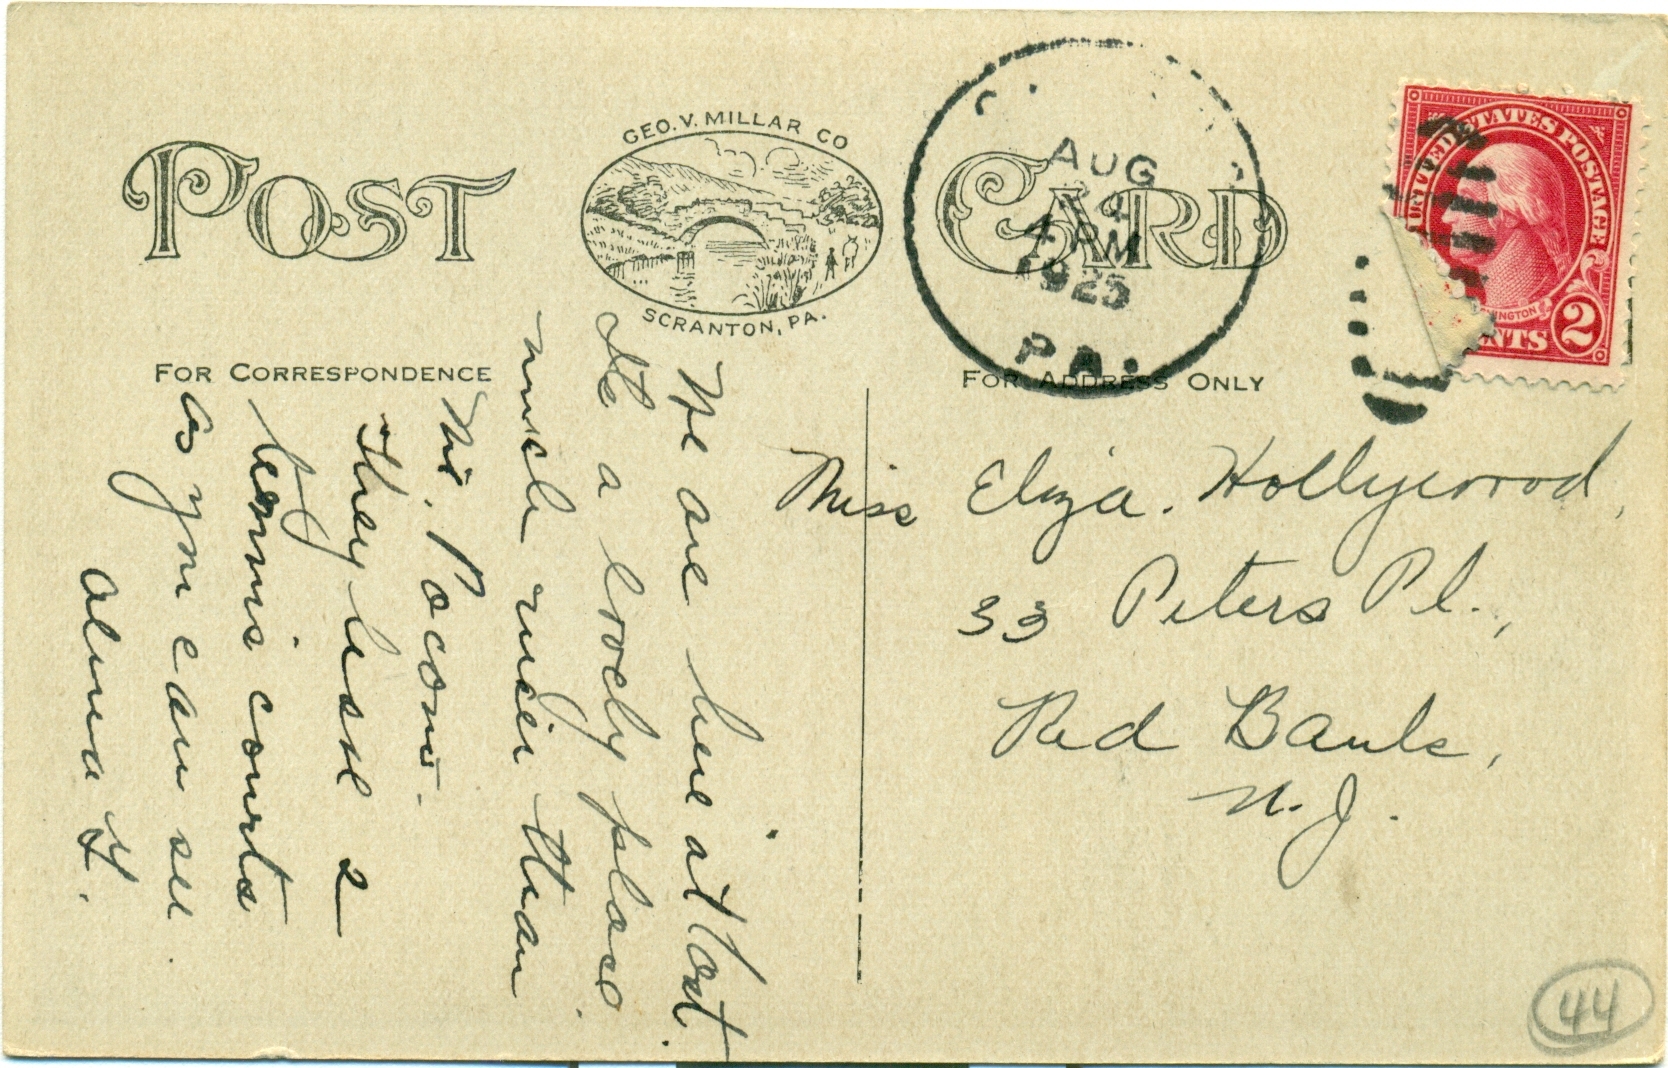 POST CARD
GEO. V. MILLAR CO
SCRANTON, PA.
FOR CORRESPONDENCE
FOR ADDRESS ONLY
AUG
24
4 PM
1925
PA.
UNITED STATES POSTAGE
2
We are here at last.
Its a lovely place.
much nicer than
Mt. Pocono.
They have 2
tennis courts
as you can see.
Alma Y.
Miss Eliza. Hollywood,
33 Peters Pl.,
Red Bank,
N.J.
44